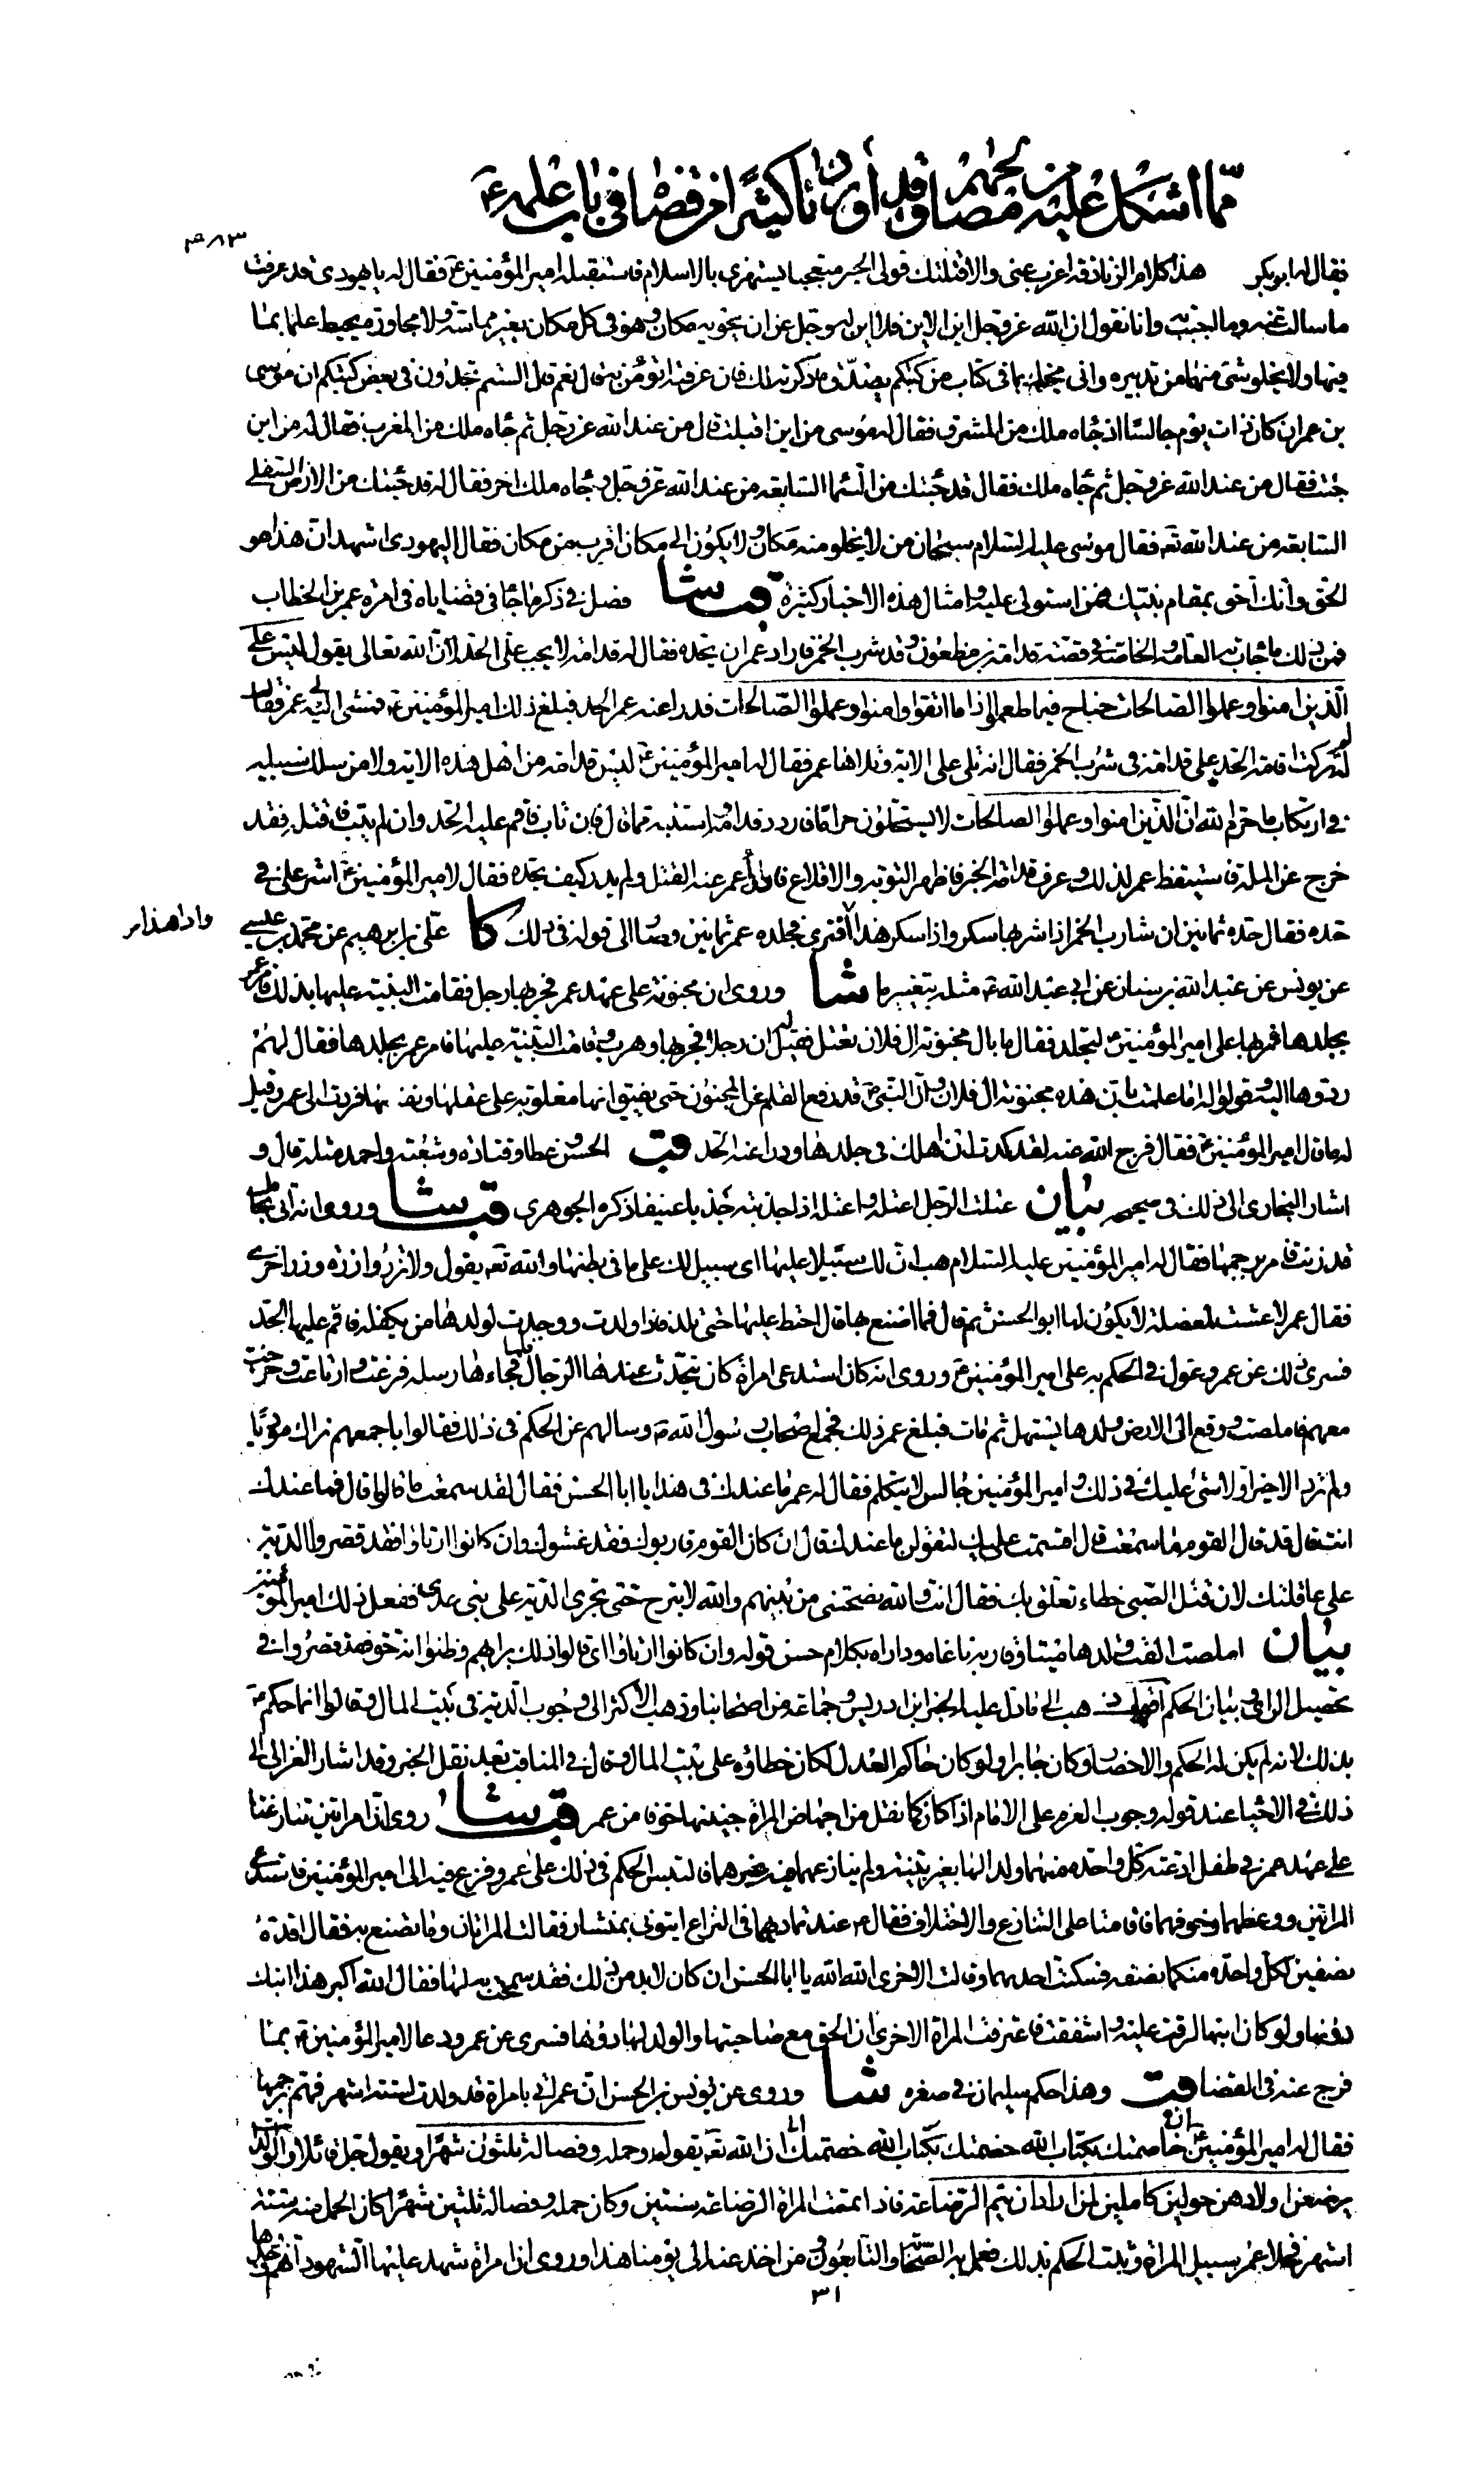 مما اشكل عليه من مصالحهم وقد أوردنا كثيرا من قضا في باب علمه ع
٨٣
فقال له ابو بكر هذا كلام الزنادقه اعزب عني والا قتلتك فولى الحبر متعجبا يستهزئ بالاسلام فاستقبله امير المؤمنين ع فقال له يا يهودي قد عرفت
ما سالت عنه وما اجبت به وانا نقول ان الله عز وجل اين الاين فلا اين له وجل عن ان يحويه مكان وهو في كل مكان بغير مماسة ولا مجاورة يحيط علما بما
فيها ولا يخلو شئ منها من تدبيره واني مخبرك بما في كتاب من كتبكم يصدق ما ذكرته لك فان عرفته اتؤمن به قال نعم قال الستم تجدون في بعض كتبكم ان موسى
بن عمران كان ذات يوم جالسا اذ جاه ملك من المشرق فقال له موسى من اين اقبلت قال من عند الله عز وجل ثم جاه ملك من المغرب فقال له من اين
جئت فقال من عند الله عز وجل ثم جاه ملك فقال قد جئتك من السما السابعه من عند الله عز وجل و جاه ملك اخر فقال له قد جئتك من الارض السفلى
السابعه من عند الله تع فقال موسى عليه السلام سبحان من لا يخلو منه مكان ولا يكون الى مكان اقرب من مكان فقال اليهودي اشهد ان هذا هو
الحق وانك احق بمقام نبيك ممن استولى عليه وامثال هذه الاخبار كثيرة قب شا فصل في ذكر ما جا في قضاياه في امرة عمر بن الخطاب
فمن ذلك ما جات به العامه والخاصه في قصة قدامة بن مظعون وقد شرب الخمر فاراد عمر ان يحده فقال له قدامة لا يجب علي الحد لان الله تعالى يقول ليس على
الذين امنوا وعملوا الصالحات جناح فيما طعموا اذا ما اتقوا وامنوا وعملوا الصالحات فدرا عنه عمر الحد فبلغ ذلك امير المؤمنين ع فمشى الى عمر فقال
له لم تركت اقامة الحد على قدامة في شرب الخمر فقال انه تلى علي الاية وتلاها عمر فقال له امير المؤمنين ع ليس قدامه من اهل هذه الاية ولا من سلك سبيله
في ارتكاب ما حرم الله ان الذين امنوا وعملوا الصالحات لا يستحلون حراما فاردد قدامة واستتبه مما قال فان تاب فاقم عليه الحد وان لم يتب فاقتله فقد
خرج عن الملة فاستيقظ عمر لذلك وعرف قدامة الخبر فاظهر التوبه والاقلاع فدرا عمر عنه القتل ولم يدر كيف يحده فقال لامير المؤمنين ع اشر علي في
حده فقال حده ثمانين ان شارب الخمر اذا شربها سكر واذا سكر هذى افترى فجلده عمر ثمانين وصار الى قوله في ذلك كا علي بن ابرهيم عن محمد بن عيسى
واذا هذى
عن يونس عن عبد الله بن سنان عن ابي عبد الله ع مثله بتغيير ما شا وروي ان مجنونة على عهد عمر فجر بها رجل فقامت البينة عليها بذلك فامر عمر
بجلدها فمر بها على امير المؤمنين ع لتجلد فقال ما بال مجنونة ال فلان تعتل فقيل له ان رجلا فجر بها وهرب وقامت البينة عليها فامر عمر بجلدها فقال لهم
ردوها اليه وقولوا له اما علمت بان هذه مجنونة ال فلان وان النبي ص قد رفع القلم عن المجنون حتى يفيق انها مغلوبة على عقلها ونفسها فردت الى عمر وقيل
له ما قال امير المؤمنين ع فقال فرج الله عنه لقد كدت ان اهلك في جلدها ودرا عنه الحد قب الحسن وعطا وقتادة وشعبة واحمد مثله قال و
اشار البخاري الى ذلك في صحيحه بيان عتلت الرجل اعتله واعتله اذا جذبته جذبا عنيفا ذكره الجوهري قب شا وروي انه اتي بحامل
قد زنت فامر برجمها فقال له امير المؤمنين عليه السلام هب ان لك سبيلا عليها اي سبيل لك على ما في بطنها والله تع يقول ولا تزر وازرة وزر اخرى
فقال عمر لا عشت لمعضلة لا يكون لها ابو الحسن ثم قال فما اصنع بها قال احتط عليها حتى تلد فاذا ولدت ووجدت لولدها من يكفله فاقم عليها الحد
فسرى ذلك عن عمر وعول في الحكم به على امير المؤمنين ع وروي انه كان استدعى امراة كان تتحدث عندها الرجال فلما جاءها رسله فزعت وارتاعت وخرجت
معهم فاملصت ووقع الى الارض ولدها يستهل ثم مات فبلغ عمر ذلك فجمع اصحاب رسول الله ص وسالهم عن الحكم في ذلك فقالوا باجمعهم نراك مؤدبا
ولم ترد الا خيرا ولا شئ عليك في ذلك وامير المؤمنين جالس لا يتكلم فقال له عمر ما عندك في هذا يا ابا الحسن فقال لقد سمعت ما قالوا قال فما عندك
انت قال قد قال القوم ما سمعت قال اقسمت عليك لتقولن ما عندك قال ان كان القوم قاربوك فقد غشوك وان كانوا ارتاوا فقد قصروا الدية
على عاقلتك لان قتل الصبي خطاء تعلق بك فقال انت والله نصحتني من بينهم والله لا تبرح حتى تجري الدية على بني عدي ففعل ذلك امير المؤمنين
بيان املصت القت ولدها ميتا وقاربه ناغاه وداراه بكلام حسن قوله وان كانوا ارتاوا اي قالوا ذلك برايهم وظنوا انه حق فقد قصروا في
تحصيل الراي وبيان الحكم اقول ذهب الى ما دل عليه الخبر ابن ادريس وجماعة من اصحابنا وذهب الاكثر الى وجوب الدية في بيت المال وقالوا انما حكم ع
بذلك لانه لم يكن له الحكم والاحضار وكان جابرا ولو كان حاكم العدل لكان خطاؤه على بيت المال وقال في المناقب بعد نقل الخبر وقد اشار الغزالي الى
ذلك في الاحيا عند قوله وجوب الغرم على الامام اذا كان كما نقل من اجهاض المراة جنينها خوفا من عمر قب شا روى ان امراتين تنازعتا
على عهد عمر في طفل ادعته كل واحده منهما ولدا لها بغير بينة ولم ينازعهما فيه غيرهما فالتبس الحكم في ذلك على عمر وفزع فيه الى امير المؤمنين ع فاستدعى
المراتين ووعظهما وخوفهما فاقامتا على التنازع والاختلاف فقال ع عند تماديهما في النزاع ايتوني بمنشار فقالت المراتان وما تصنع به فقال اقده
نصفين لكل واحدة منكما نصفه فسكتت احديهما وقالت الاخرى الله الله يا ابا الحسن ان كان لابد من ذلك فقد سمحت به لها فقال الله اكبر هذا ابنك
دونها ولو كان ابنها لرقت عليه واشفقت فاعترفت المراة الاخرى ان الحق مع صاحبتها والولد لها دونها فسرى عن عمر ودعا لامير المؤمنين ع بما
فرج عنه في القضا قب وهذا حكم سليمان في صغره شا وروي عن يونس بن الحسن ان عمر اتي بامراة قد ولدت لستة اشهر فهم برجمها
فقال له امير المؤمنين ع ان خاصمتك بكتاب الله خصمتك ان الله تع يقول وحمله وفصاله ثلثون شهرا ويقول جل قائلا والوالدات
يرضعن اولادهن حولين كاملين لمن اراد ان يتم الرضاعة فاذا تممت المراة الرضاعة سنتين وكان حمله وفصاله ثلثين شهرا كان الحمل منه ستة
اشهر فخلا عمر سبيل المراة وثبت الحكم بذلك فعمل به الصحابة والتابعون ومن اخذ عنه الى يومنا هذا وروي ان امراة شهد عليها الشهود انهم وجدوها
٣١